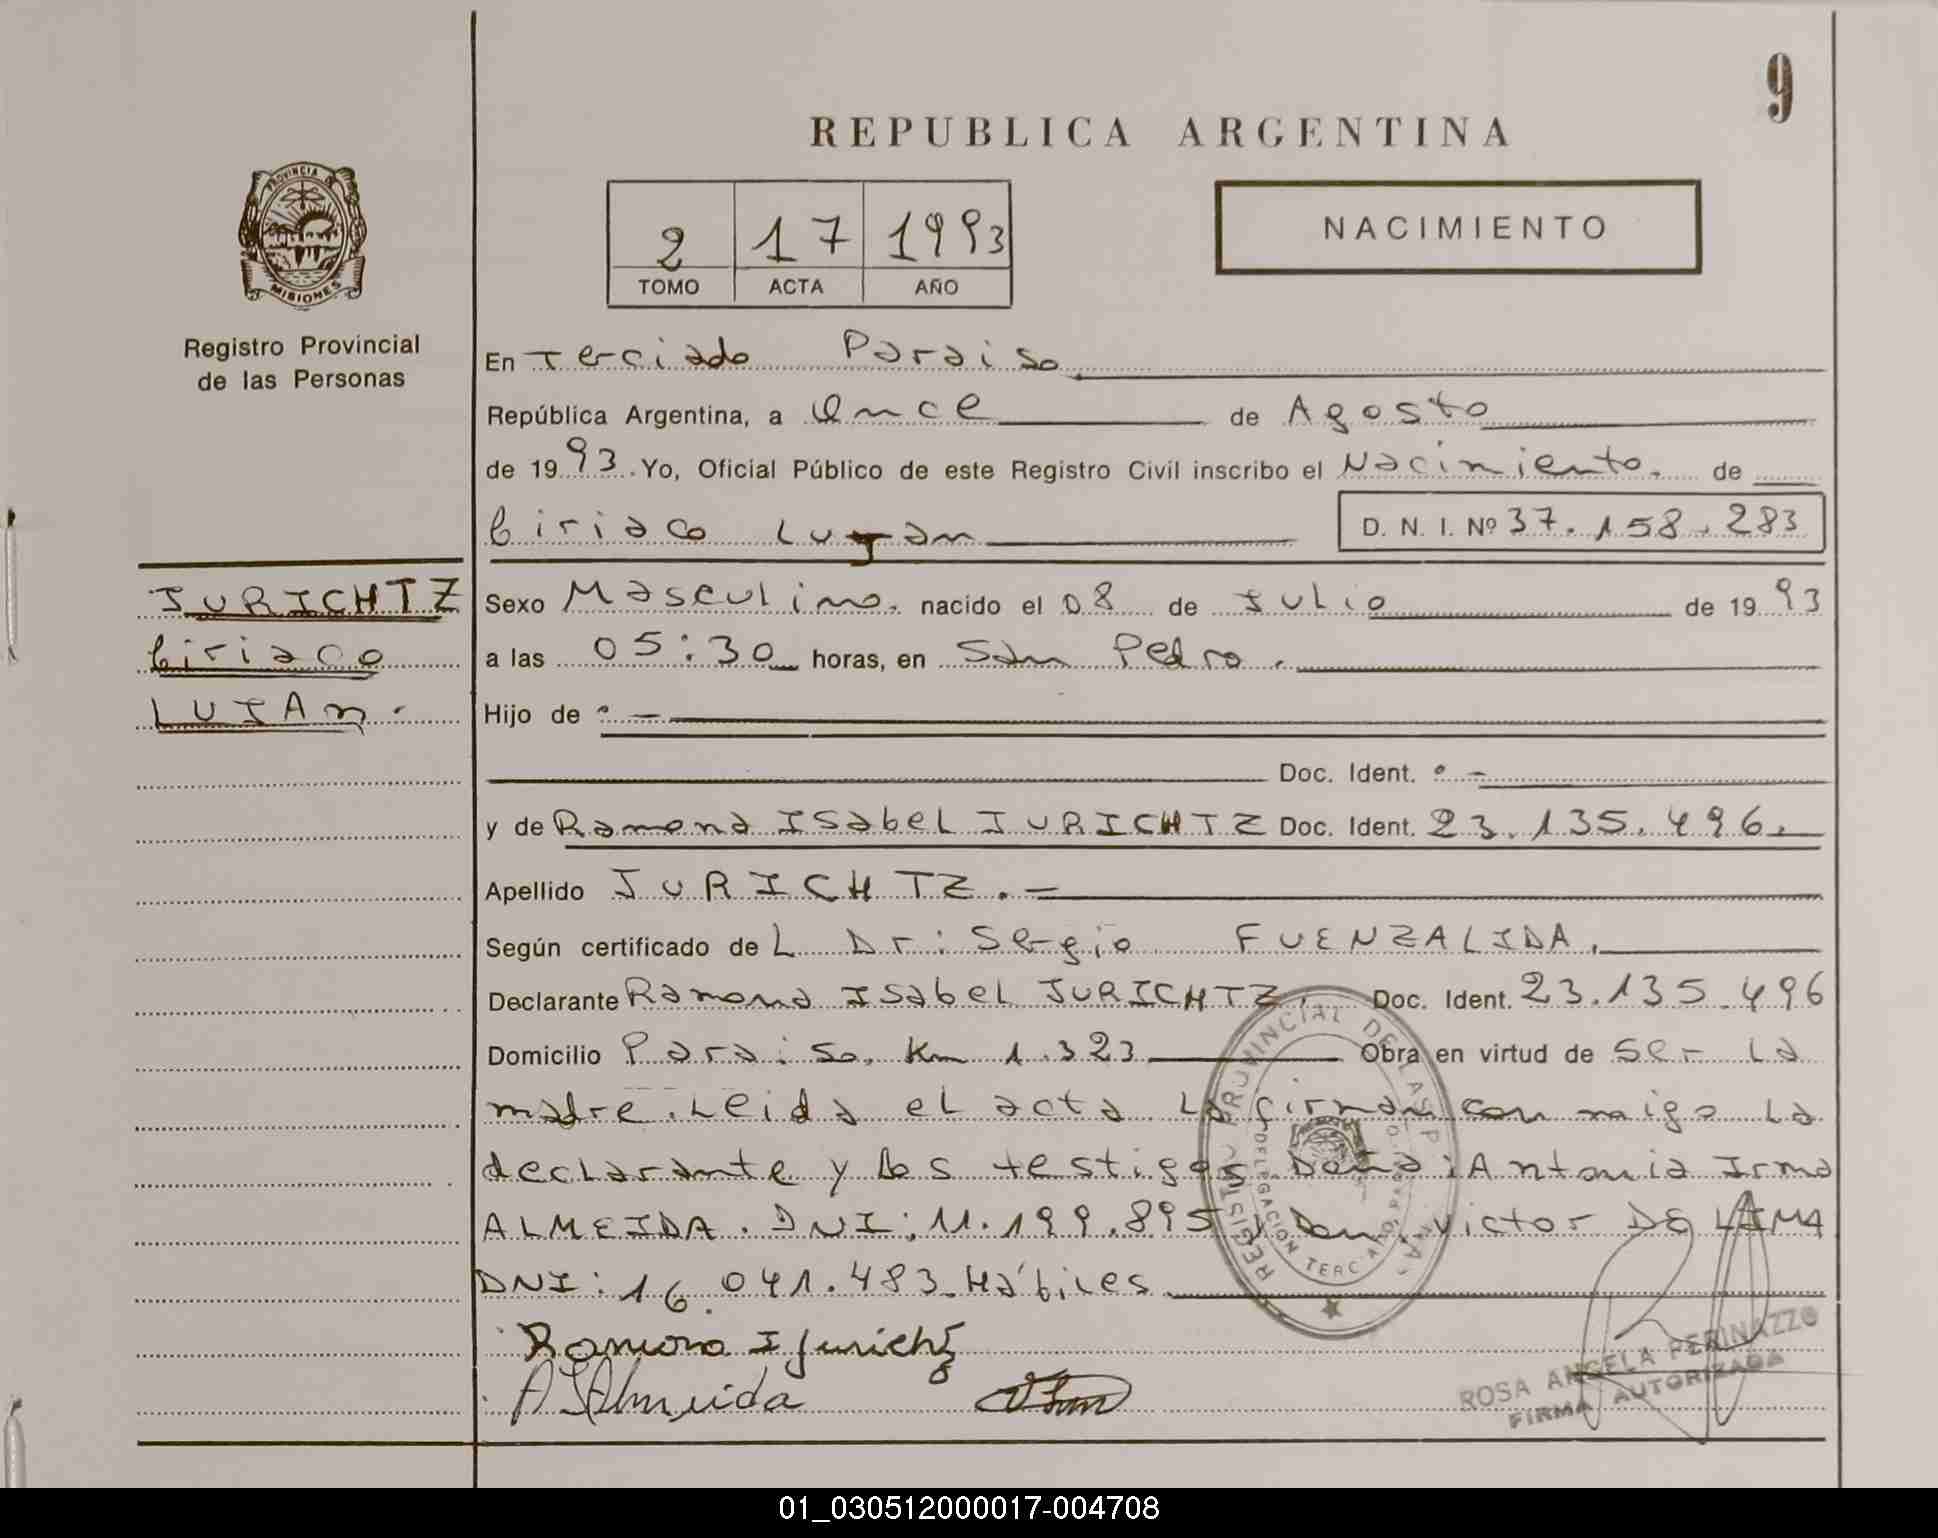 9
REPUBLICA ARGENTINA
PROVINCIA DE
MISIONES
Registro Provincial
de las Personas
2 17 1993
TOMO ACTA AÑO
NACIMIENTO
En Terciado Paraiso
República Argentina, a Once de Agosto
de 1993. Yo, Oficial Público de este Registro Civil inscribo el Nacimiento. de
Ciriaco Lujan D. N. I. Nº 37.158.283
JURICHTZ
Ciriaco
LUJAn.-
Sexo Masculino. nacido el 08 de Julio de 1993
a las 05:30 horas, en San Pedro.
Hijo de
Doc. Ident.
y de Ramona Isabel JURICHTZ Doc. Ident. 23.135.496.
Apellido JURICHTZ.-
Según certificado deL Dr: Sergio FUENZALIDA.
Declarante Ramona Isabel JURICHTZ. Doc. Ident. 23.135.496
Domicilio Paraiso. Km 1.323 Obra en virtud de Ser La
madre. Leida el acta La firman con migo La
declarante y Los testigos Doña: Antonia Irma
ALMEIDA. DNI: 11.199.895 y Don. Victor DE LIMA
DNI: 16.041.483. Hábiles.
Ramona I Jurichtz
A I Almeida
REGISTRO PROVINCIAL DE LAS P
DELEGACION TERC
ROSA ANGELA PERINAZZO
FIRMA AUTORIZADA
01_030512000017-004708